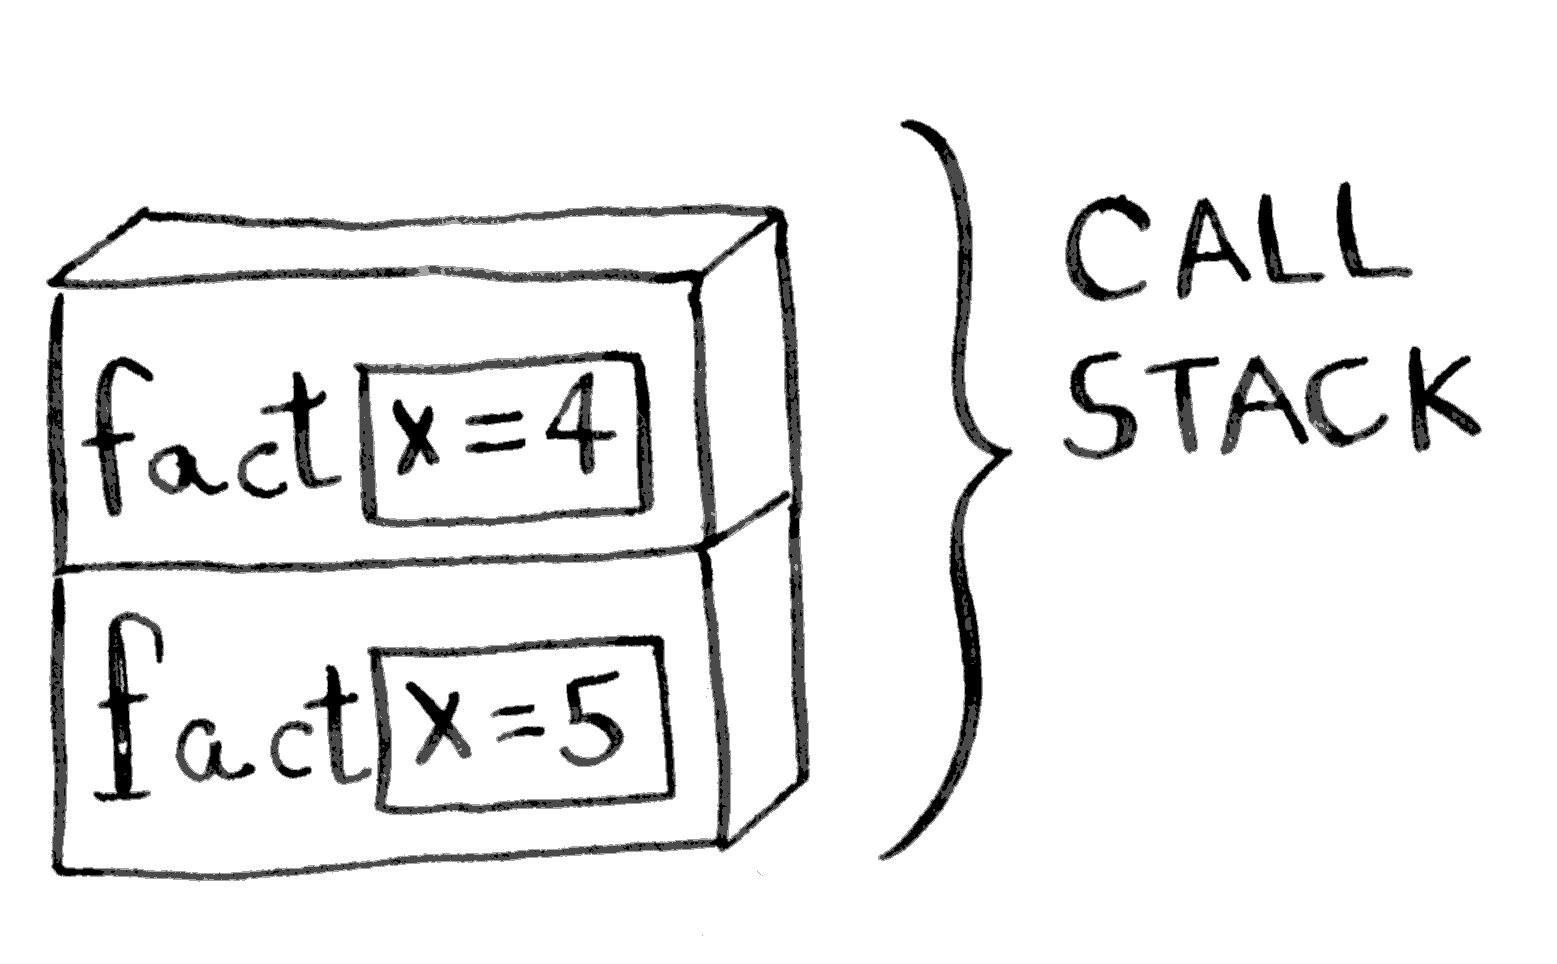 fact x=4
fact x=5
CALL
STACK